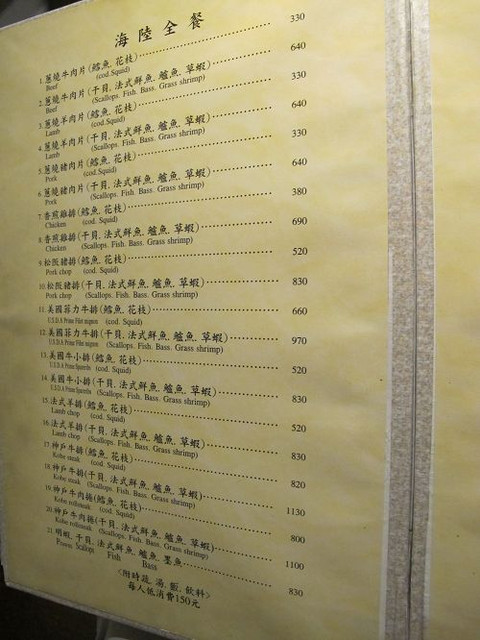 海陸全餐
1.蔥燒牛肉片(鱈魚.花枝) 330
Beef (cod.Squid)
2.蔥燒牛肉片(干貝.法式鮮魚.鱸魚.草蝦) 640
Beef (Scallops. Fish. Bass. Grass shrimp)
3.蔥燒羊肉片(鱈魚.花枝) 330
Lamb (cod.Squid)
4.蔥燒羊肉片(干貝.法式鮮魚.鱸魚.草蝦) 640
Lamb (Scallops. Fish. Bass. Grass shrimp)
5.蔥燒豬肉片(鱈魚.花枝) 330
Pork (cod. Squid)
6.蔥燒豬肉片(干貝.法式鮮魚.鱸魚.草蝦) 640
Pork (Scallops. Fish. Bass. Grass shrimp)
7.香煎雞排(鱈魚.花枝) 380
Chicken (cod. Squid)
8.香煎雞排(干貝.法式鮮魚.鱸魚.草蝦) 690
Chicken (Scallops. Fish. Bass. Grass shrimp)
9.松阪豬排(鱈魚.花枝) 520
Pork chop (cod. Squid)
10.松阪豬排(干貝.法式鮮魚.鱸魚.草蝦) 830
Pork chop (Scallops. Fish. Bass. Grass shrimp)
11.美國菲力牛排(鱈魚.花枝) 660
U.S.D.A Prime Filet mignon (cod. Squid)
12.美國菲力牛排(干貝.法式鮮魚.鱸魚.草蝦) 970
U.S.D.A Prime Filet mignon (Scallops. Fish. Bass. Grass shrimp)
13.美國牛小排(鱈魚.花枝) 520
U.S.D.A Prime Spareribs (cod. Squid)
14.美國牛小排(干貝.法式鮮魚.鱸魚.草蝦) 830
U.S.D.A Prime Spareribs (Scallops. Fish. Bass. Grass shrimp)
15.法式羊排(鱈魚.花枝) 520
Lamb chop (cod. Squid)
16.法式羊排(干貝.法式鮮魚.鱸魚.草蝦) 830
Lamb chop (Scallops. Fish. Bass. Grass shrimp)
17.神戶牛排(鱈魚.花枝) 820
Kobe steak (cod. Squid)
18.神戶牛排(干貝.法式鮮魚.鱸魚.草蝦) 1130
Kobe steak (Scallops. Fish. Bass. Grass shrimp)
19.神戶牛肉捲(鱈魚.花枝) 800
Kobe rollsteak (cod. Squid)
20.神戶牛肉捲(干貝.法式鮮魚.鱸魚.草蝦) 1100
Kobe rollsteak (Scallops. Fish. Bass. Grass shrimp)
21.明蝦.干貝.法式鮮魚.鱸魚.墨魚 830
Prawn Scallops Fish Bass
<附時蔬.湯.飯.飲料>
每人低消費150元